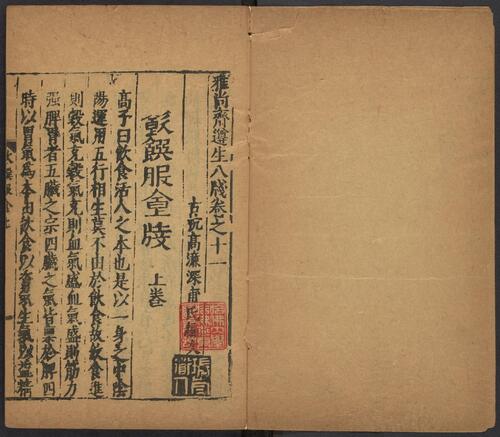 雅尚齋遵生八牋卷之十一
古杭高濂深甫氏
飲饌服食牋 上卷
高子曰飲食活人之本也是以一身之中陰
陽運用五行相生莫不由於飲食故飲食進
則穀氣充穀氣充則血氣盛血氣盛則筋力
强脾胃者五臟之宗四臟之氣皆稟於脾四
時以胃氣為本由飲食以資氣生氣以益精